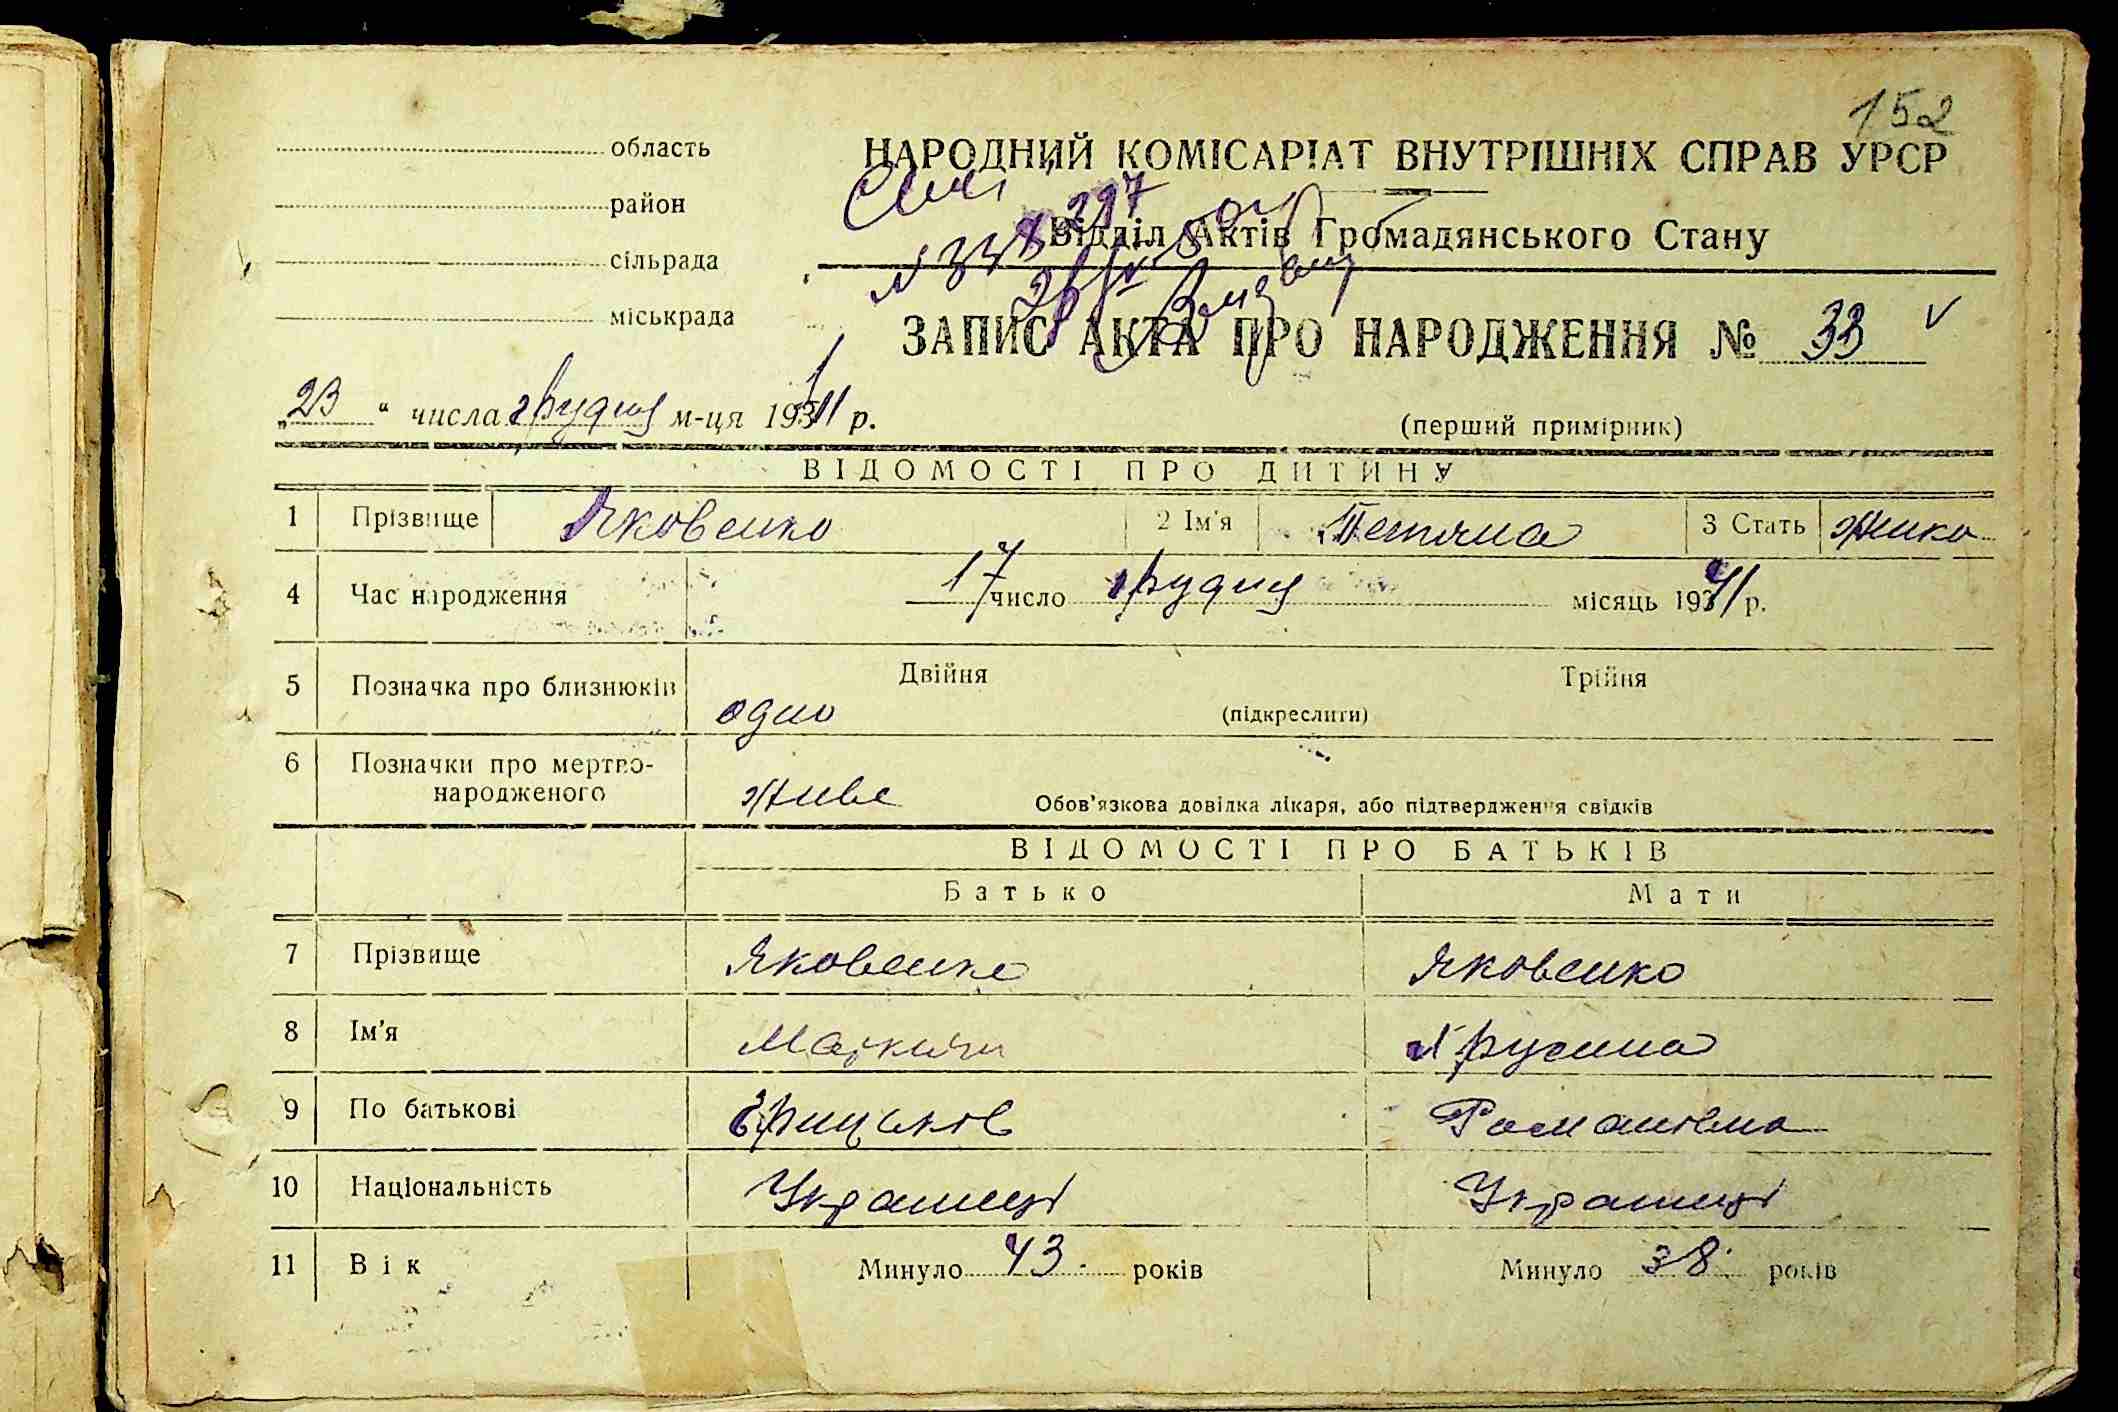 152
область НАРОДНИЙ КОМІСАРІАТ ВНУТРІШНІХ СПРАВ УРСР
район
Відділ Актів Громадянського Стану
сільрада
міськрада
ЗАПИС АКТА ПРО НАРОДЖЕННЯ № 33
„23“ числа грудня м-ця 1941 р.
(перший примірник)
ВІДОМОСТІ ПРО ДИТИНУ
1 Прізвище Яковенко 2 Ім'я Тетяна 3 Стать жінка
4 Час народження 17 число грудня місяць 1941 р.
5 Позначка про близнюків одно Двійня Трійня
(підкреслити)
6 Позначки про мертво-
народженого живе Обов'язкова довідка лікаря, або підтвердження свідків
ВІДОМОСТІ ПРО БАТЬКІВ
Батько Мати
7 Прізвище Яковенко Яковенко
8 Ім'я
9 По батькові Грицьков Романовна
10 Національність
11 Вік Минуло 43 років Минуло 38 років